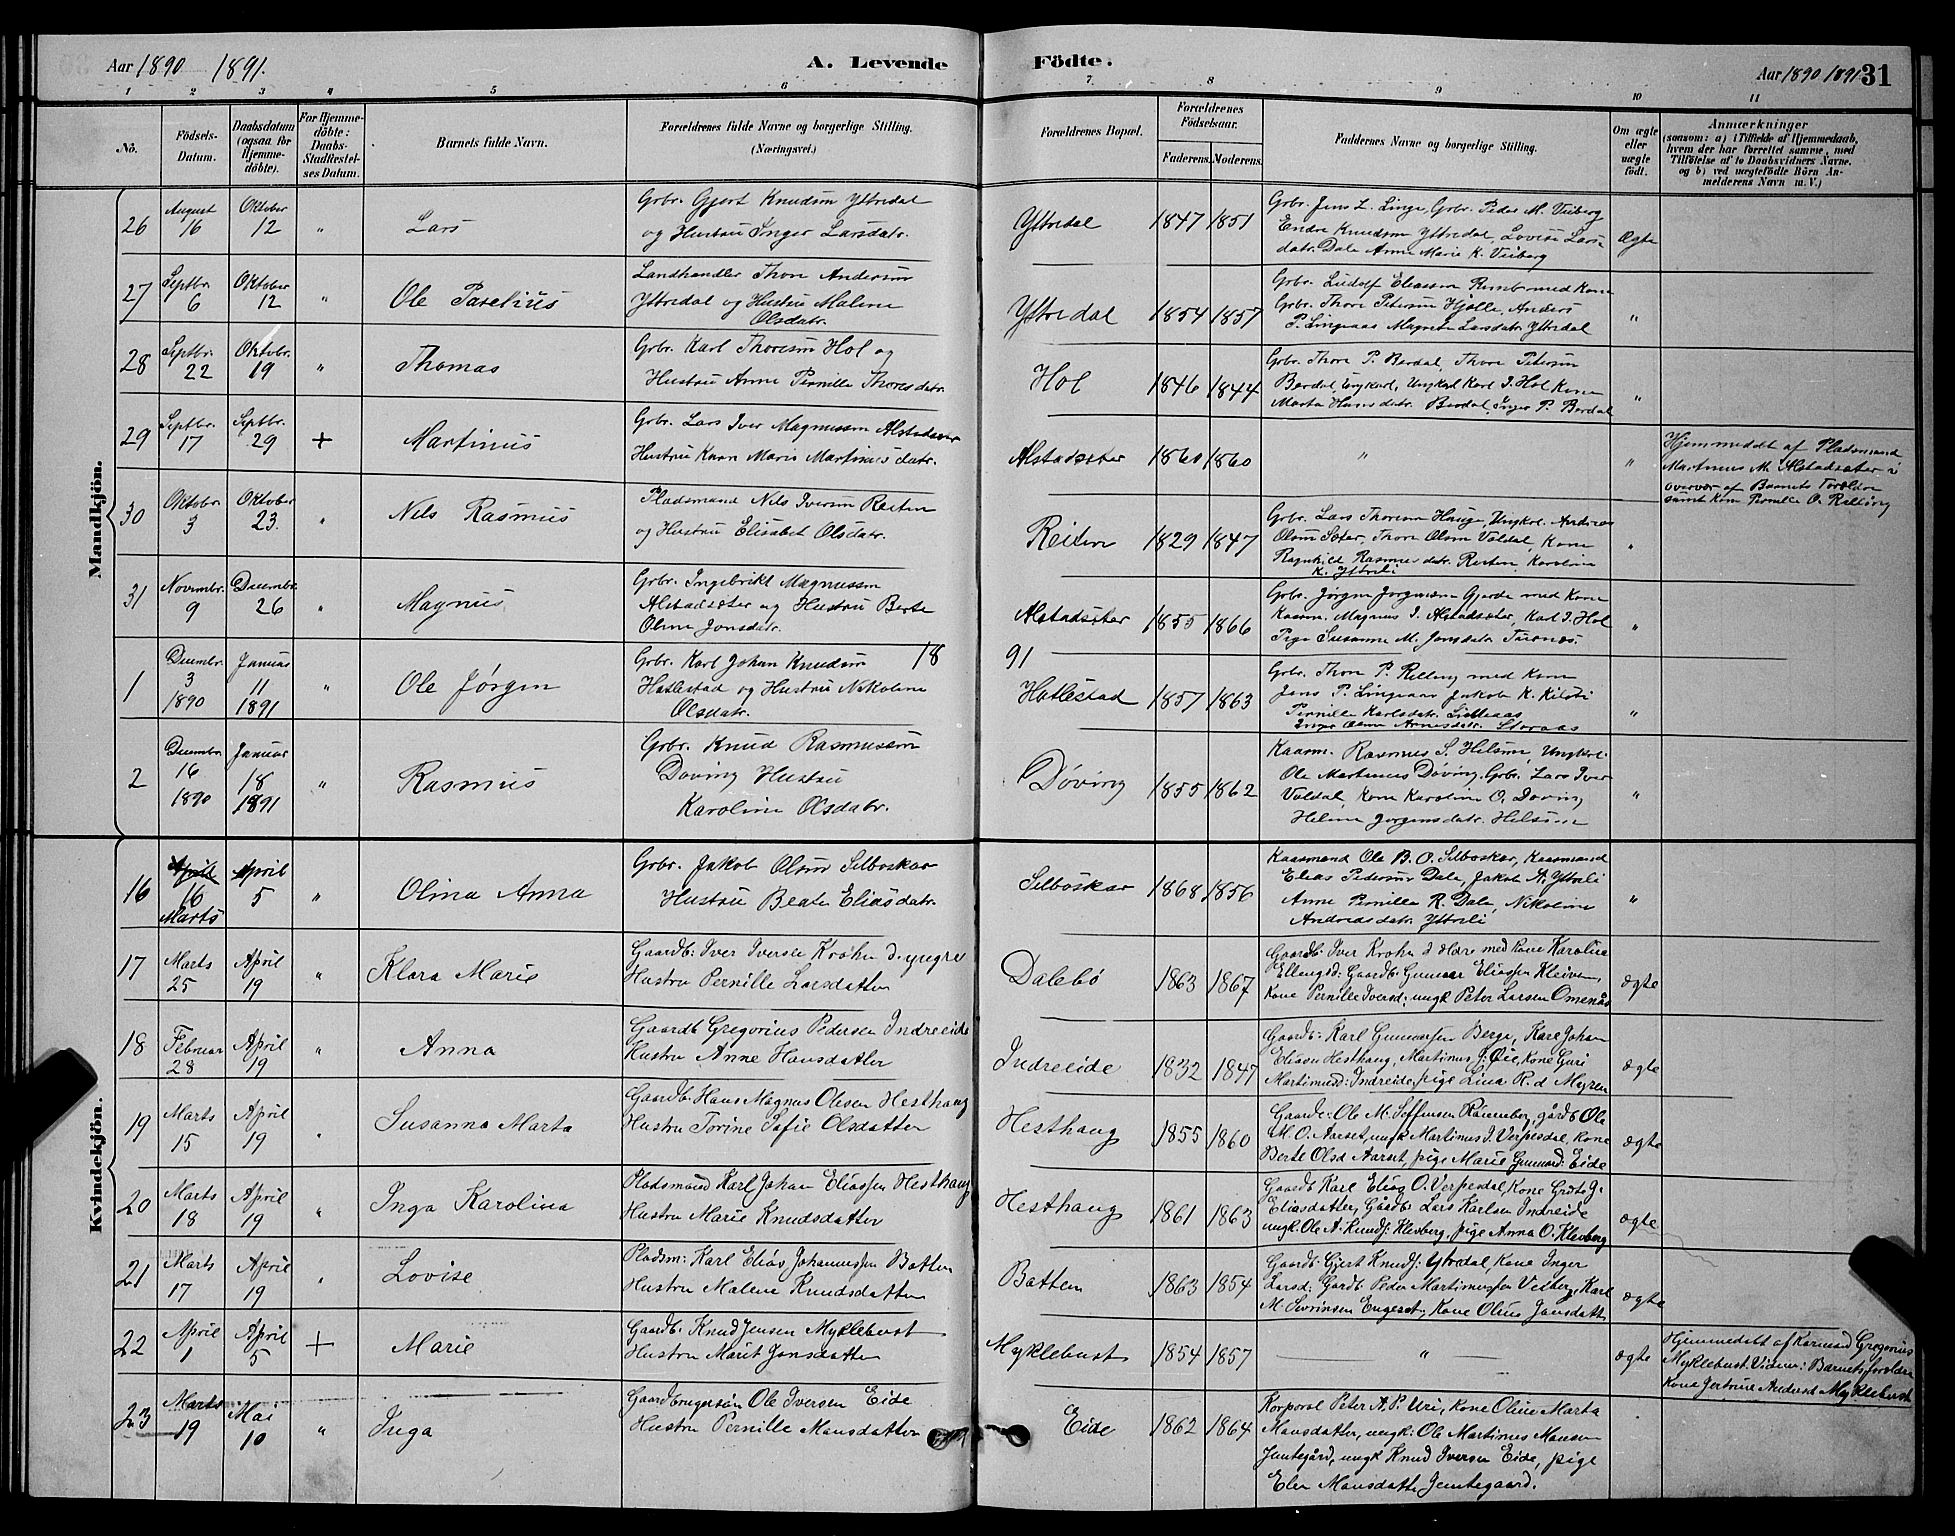 Aar 1890 1891. A. Levende Födte. Aar 1890 1891 31
1 2 3 4 5 6 7. 8 9 10 11
No.
Födsels-
Datum.
Daabsdatum
(ogsaa for
Hjemme-
döbte).
For Hjemme-
döbte:
Daabs-
Stadfæstel-
ses Datum.
Barnets fulde Navn.
Forældrenes fulde Navne og borgerlige Stilling.
(Næringsvei.)
Forældrenes Bopæl.
Forældrenes
Födselsaar.
Faderens. Moderens.
Faddernes Navne og borgerlige Stilling.
Om ægte
eller
uægte
födt.
Anmærkninger
(saasom: a) i Tilfælde af Hjemmedaab,
hvem der har forrettet samme, med
Tilföielse af to Daabsvidners Navne.
og b) ved uægtefödte Börn An-
melderens Navn m. V.)
Mandkjön.
26 August 16 Oktober 12 " Lars
Grbr. Gjert Knudsen Yttredal
og Hustru Inger Larsdatr.
Yttredal 1847 1851
Grbr. Jens L. Linge, Grbr. Peder M. Veiberg
Endre Knudsen Yttredal, Lovise Lars-
datr. Dale Anne Marie K. Veiberg
Ægte
27 Septbr. 6 Oktober 12 " Ole Parelius
Landhandler Thore Andersen
Yttredal og Hustru Malene
Olsdatr.
Yttredal 1854 1857
Grbr. Ludolf Eliassen med Kone
Grbr. Thore Petersen Hjelle, Anders
P. Lingaas Magrete Larsdatr. Yttredal
"
28 Septbr. 22 Oktobr. 19 " Thomas
Grbr. Karl Thoresen Hol og
Hustru Anne Pernille Thoresdatr.
Hol 1846 1844
Grbr. Thore P. Berdal, Thore Petersen
Berdal Ungkarl, Ungkarl Karl I. Hol Kone
Marta Hansdatr. Berdal, Inger P. Berdal
"
29 Septbr. 17 Septbr. 29 + Martinus
Grbr. Lars Iver Magnussen Alstadsæter
Hustru Karen Marie Martinusdatr.
Alstadsæter 1860 1860 " "
Hjemmedøbt af Pladsmand
Martinus M. Alstadsæter i
overvær af Barnets Forældre
samt Kone Pernille O. Relling
30 Oktober 3 Oktober 23. " Nels Rasmus
Pladsmand Nels Iversen Reiten
og Hustru Elisabet Olsdatr.
Reiten 1829 1847
Grbr. Lars Thoresen Hauge, Ungkrl. Andreas
Olsen Sæter, Thore Olsen Valdal, Kone
Ragnhild Rasmusdatr. Reiten, Karoline
K. Yttreli
"
31 Novembr. 9 Decembr. 26 " Magnus
Grbr. Ingebrikt Magnussen
Alstadsæter og Hustru Berte
Oline Jonsdatr.
Alstadsæter 1855 1866
Grbr. Jørgen Jørgensen Gjerde med Kone
Kaarm. Magnus I. Alstadsæter, Karl I. Hol
Pige Susanne M. Jonsdatr.
"
18 91
1 Decembr. 3 1890 Januar 11 1891 " Ole Jørgen
Grbr. Karl Johan Knudsen
Hatlestad og Hustru Nikoline
Olsdatr.
Hatlestad 1857 1863
Grbr. Thore P. Relling med Kone
Jens P. Lingaas Jakob K. Kilsti
Pernille Karlsdatr. Lilleaas
Inger Oline Arnesdatr. Storaas
"
2 Decembr. 16 1890 Januar 18 1891 " Rasmus
Grbr. Knud Rasmussen
Døving Hustru
Karoline Olsdatr.
Døving 1855 1862
Kaarm. Rasmus S. Helsem, Ungkrl.
Ole Martinus Døving, Grbr. Lars Iver
Valdal, Kone Karoline O. Døving
Heline Jørgensdatr. Helsem
"
Kvindekjön.
16 April 16 Marts April 5 " Olina Anna
Grbr. Jakob Olsen Selboskar
Hustru Beate Eliasdatr.
Selboskar 1868 1856
Kaarmand Ole B. O. Selboskar, Kaarmand
Elias Pedersen Dale, Jakob A. Yttreli
Anne Pernille R. Dale, Nikoline
Andreasdatr. Yttreli
"
17 Marts 25 April 19 " Klara Marie
Gaardb: Iver Iversen Krohn d. yngre
Hustru Pernille Larsdatter
Dalebö 1863 1867
Gaardb: Iver Krohn d ældre med kone Karolina
Ellingsd: Gaardb: Gunnar Eliassen Kleiven,
kone Pernille Iversd; ungk Peter Larsen Omenås
ægte
18 Februar 28 April 19 " Anna
Gaardb Gregorius Pedersen Indreeide
Hustru Anne Hansdatter
Indreeide 1832 1847
Gaardb: Karl Gunnarsen Berge, Karl Johan
Eliasen Hesthaug, Martinus J. Öie, kone Guri
Martinusd: Indreide, pige Lina R. d Myren
ægte
19 Marts 15 April 19 " Susanna Marta
Gaardb: Hans Magnus Olesen Hesthaug
Hustru Torine Sofie Olsdatter
Hesthaug 1855 1860
Gaardb: Ole M. Steffensen Rönneberg, gårdb Ole
M. O. Aarset, ungk Martinus I. Verpesdal, kone
Berte Olsd Aarset, pige Marie Gunnard: Eide
ægte
20 Marts 18 April 19 " Inga Karolina
Pladsmand Karl Johan Eliassen Hesthaug
Hustru Marie Knudsdatter
Hesthaug 1861 1863
Gaardb Karl Elias O. Verpesdal, kone Gröte J.
Eliasdatter, Gaardb: Lars Karlsen Indreide
ungk. Ole A. Knudj: Klevberg, pige Anna O. Klevberg
ægte
21 Marts 17 April 19 " Lovise
Pladsm: Karl Elias Johannessen Batten
Hustru Malene Knudsdatter
Batten 1863 1854
Gaardb: Gjert Knudj: Ytredal, kone Inger
Larsd: Gardb Peder Martinussen Veiberg, Karl
M. Sevrinsen Engeset, kone Oline Jansdatter
ægte
22 April 1 April 5 + Marie
Gaardb: Knud Jensen Myklebust
Hustru Marit Jonsdatter
Myklebust 1854 1857 " ægte
Hjemmedøbt af Kårmand Gregorius
Myklebust. Vidner: Barnets forældre
Kone Jertrine Andersd Myklebust
23 Marts 19 Mai 10 " Inga
Gaardbrugersön Ole Iversen Eide
Hustru Pernille Mansdatter
Eide 1862 1864
Korporal Peter A. P. Uri, kone Oline Marta
Mansdatter, ungk: Ole Martinus Mansen
Jemtegård, ungk Knud Iversen Eide, pige
Elen Mansdatter Jemtegaard.